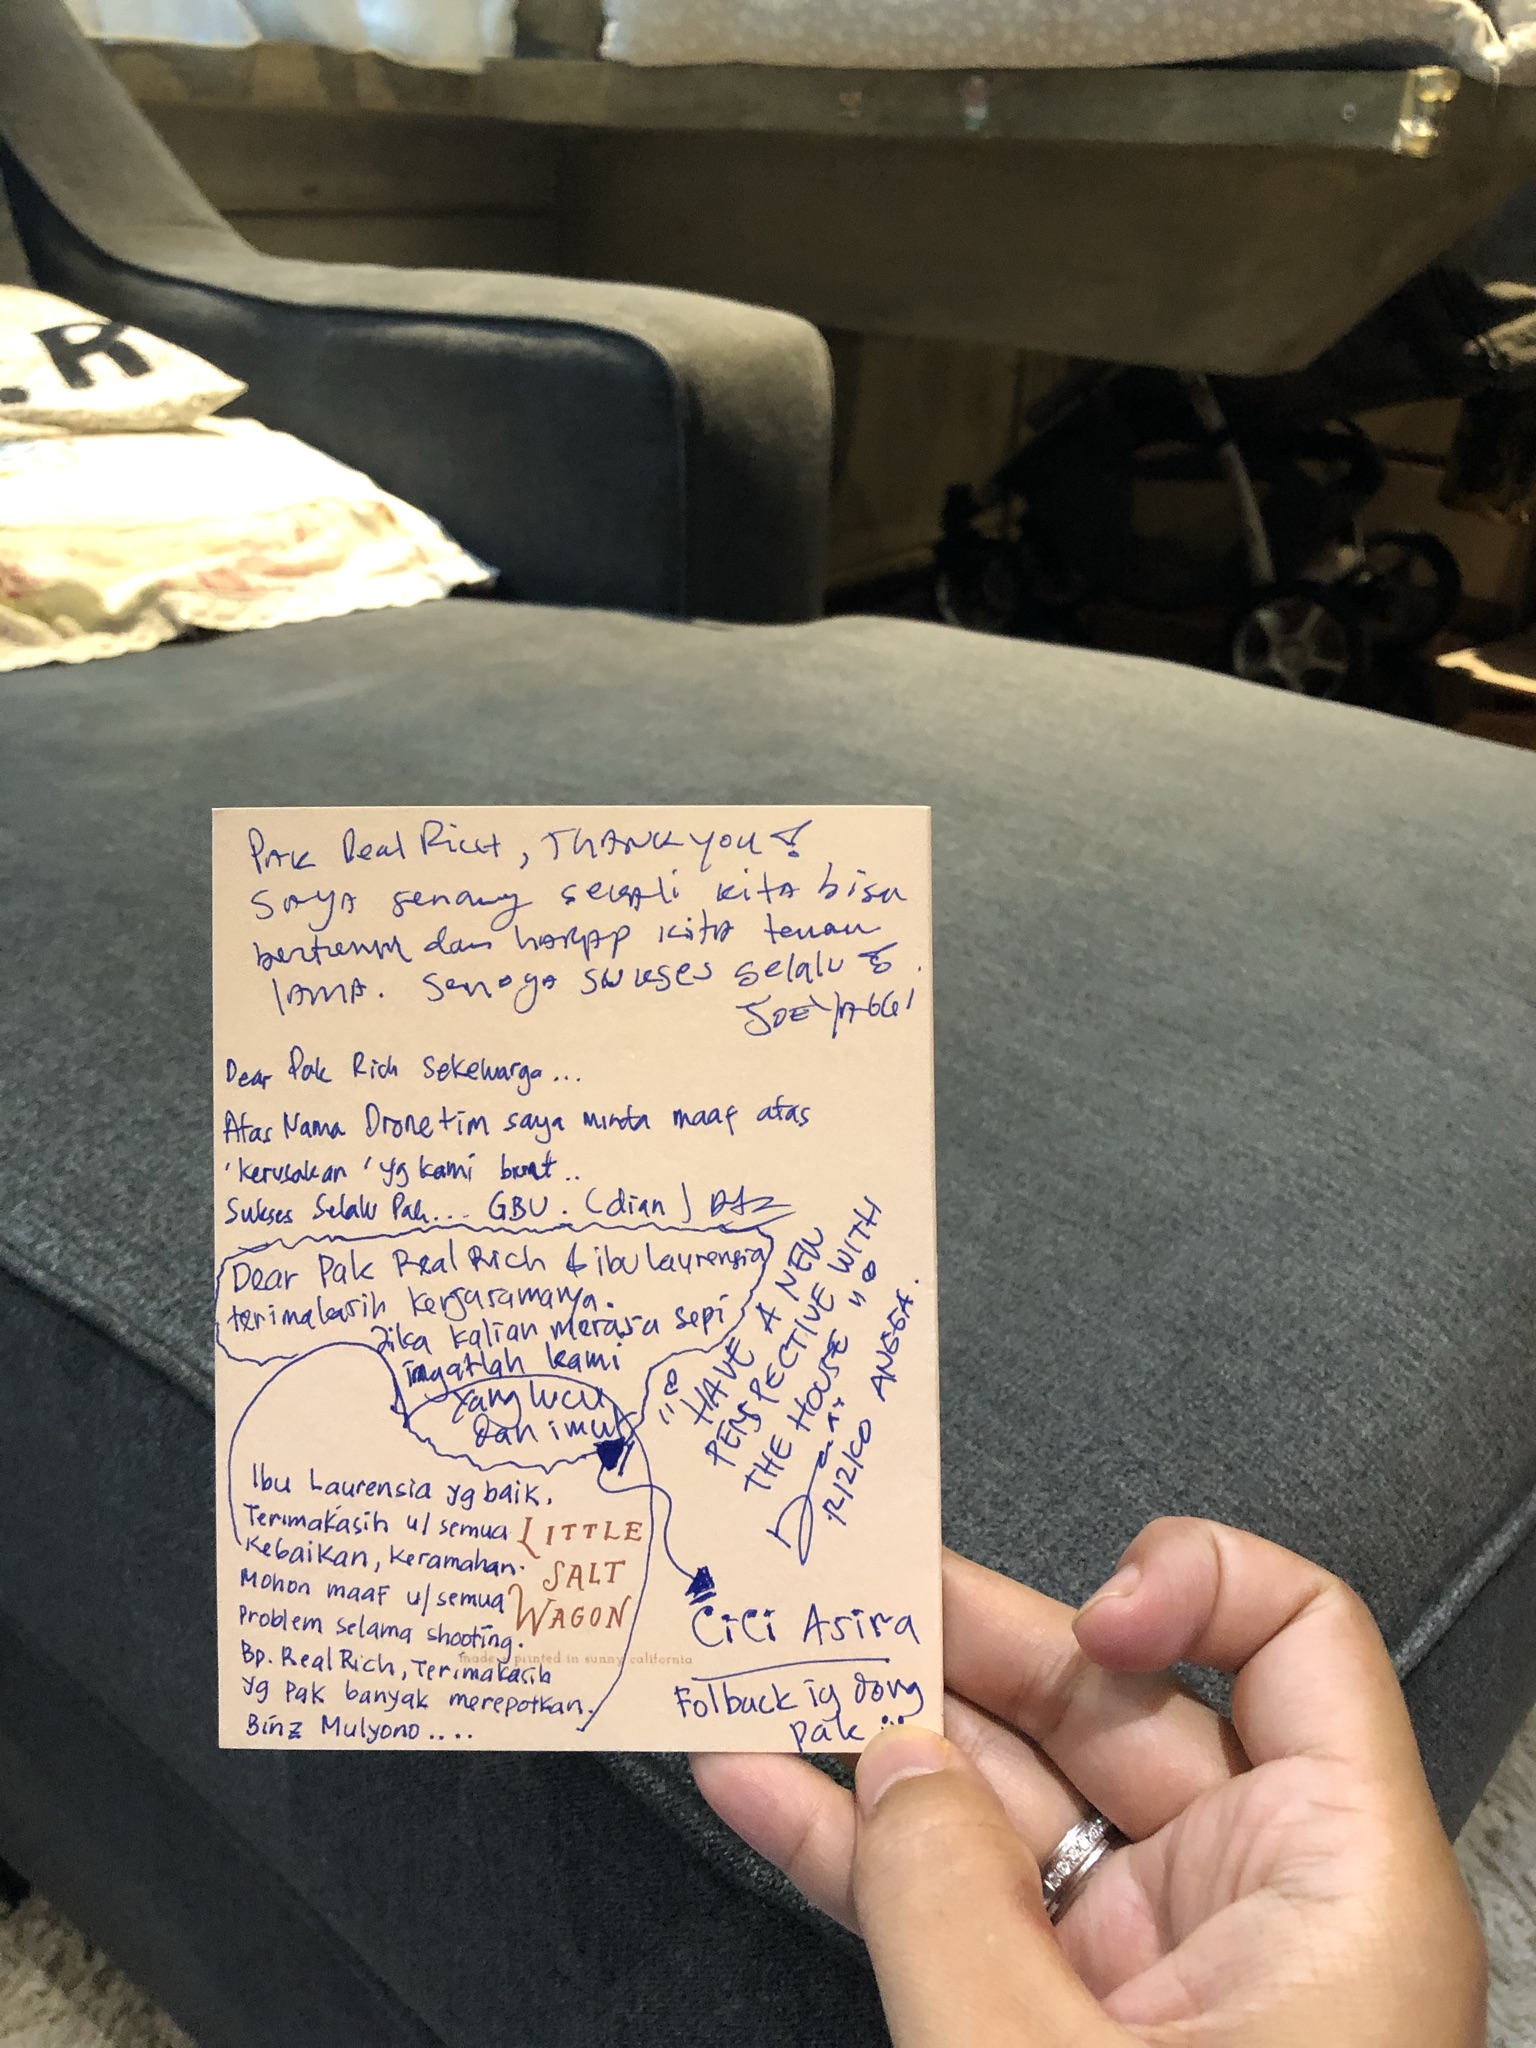 .R
PAK Real Rich, THANK YOU!
SAYA senang sekali kita bisa
bertemu dan harap kita teman
lama. Semoga sukses selalu
Dear Pak Rich Sekeluarga...
Atas Nama Drone tim saya minta maaf atas
'kerusakan' yg kami buat..
Sukses Selalu Pak.... GBU. (dian)
Dear Pak Real Rich & ibu Laurensia
terimakasih kerjasamanya.
Jika kalian merasa sepi
ingatlah kami
yang lucu
dan imut
CiCi Asira
Folback ig dong
pak
"HAVE A NEW
PERSPECTIVE WITH
THE HOUSE"
RIZKO ANGGA.
Ibu Laurensia yg baik.
Terimakasih u/ semua
Kebaikan, keramahan.
Mohon maaf u/ semua
Problem selama shooting.
Bp. Real Rich, Terimakasih
yg pak banyak merepotkan.
Binz Mulyono....
LITTLE
SALT
WAGON
made & printed in sunny california